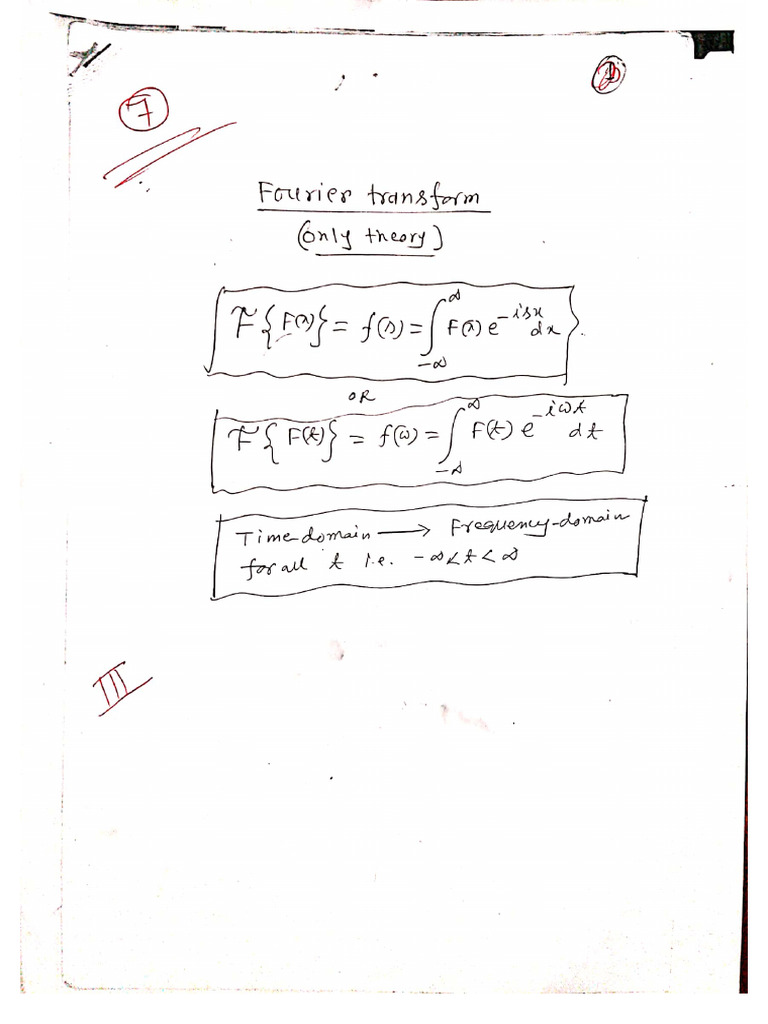 7
Fourier transform
(only theory)
𝓕{F(x)} = f(s) = ∫_{-∞}^{∞} F(x) e^{-isx} dx
OR
𝓕{F(t)} = f(ω) = ∫_{-∞}^{∞} F(t) e^{-iωt} dt
Time-domain ⟶ Frequency-domain
for all t i.e. -∞<t<∞
III